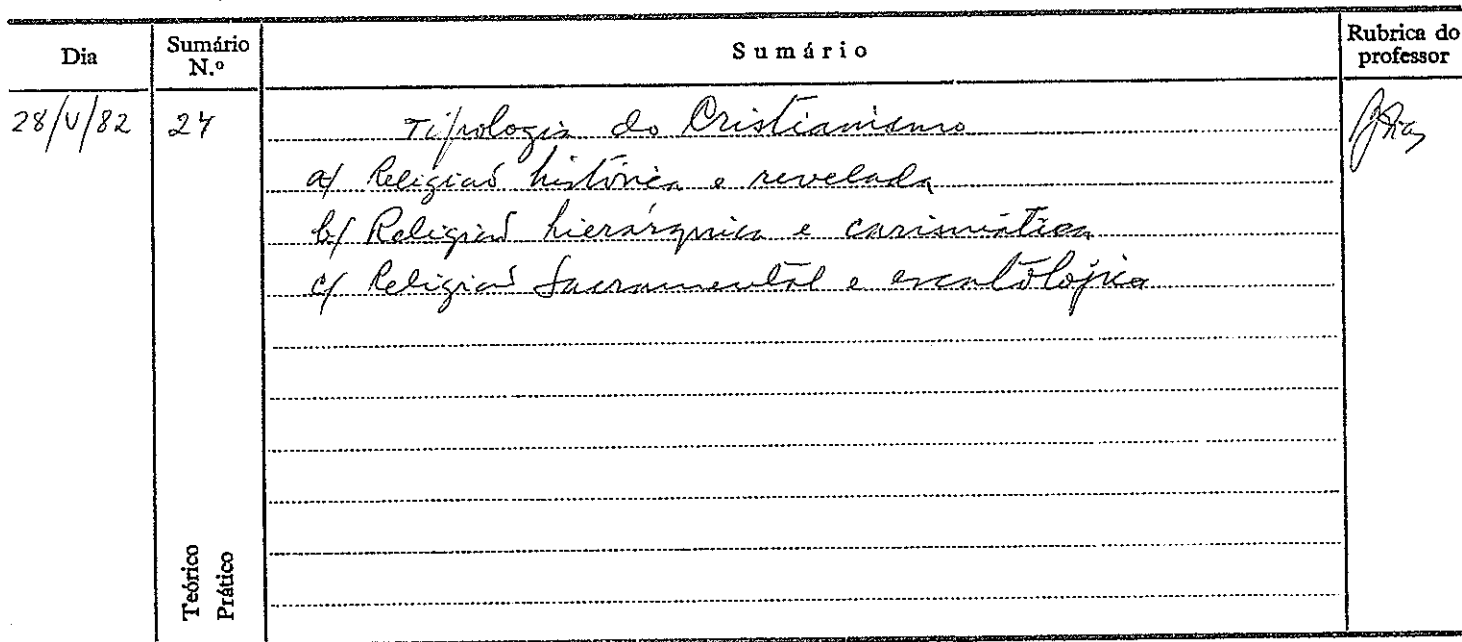 Dia
Sumário N.º
Sumário
Rubrica do professor
28/V/82
Tipologia do Cristianismo
a/ Religião histórica e revelada
b/ Religião hierárquica e carismática
c/ Religião Sacramental e escatológica
Teórico
Prático